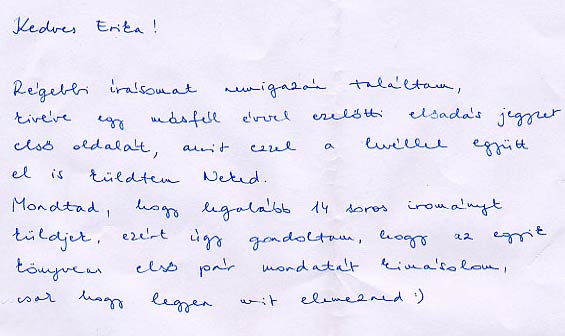 Kedves Erika!
Régebbi írásomat nemigazán találtam,
kivéve egy másfél évvel ezelőtti előadás jegyzet
első oldalát, amit ezel a levéllel együtt
el is küldtem Neked.
Mondtad, hogy legalább 14 soros irományt
küldjek, ezért úgy gondoltam, hogy az egyik
könyvem első pár mondatát kimásolom,
csak hogy legyen mit elemezned :)